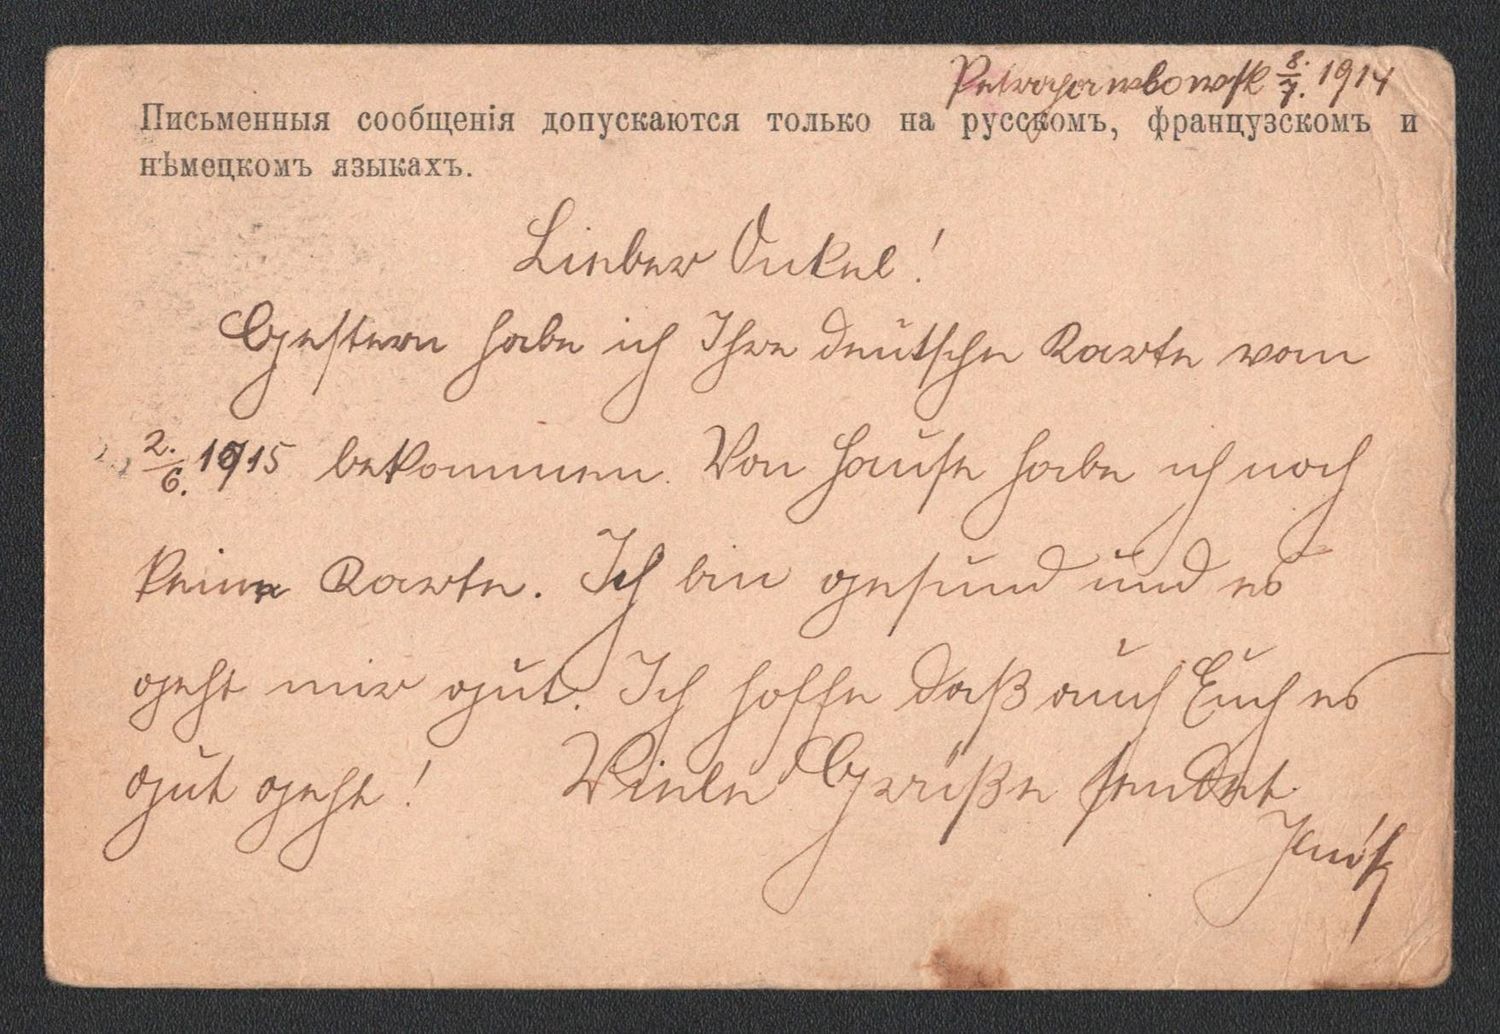 8./7. 1914
Письменныя сообщенія допускаются только на русскомъ, французскомъ и
нѣмецкомъ языкахъ.
Lieber Onkel!
Gestern habe ich Ihre deutsche Karte vom
2./6. 1915 bekommen. Von Hause habe ich noch
keine Karte. Ich bin gesund und es
geht mir gut. Ich hoffe daß auch Euch es
gut geht! Viele Grüße sendet